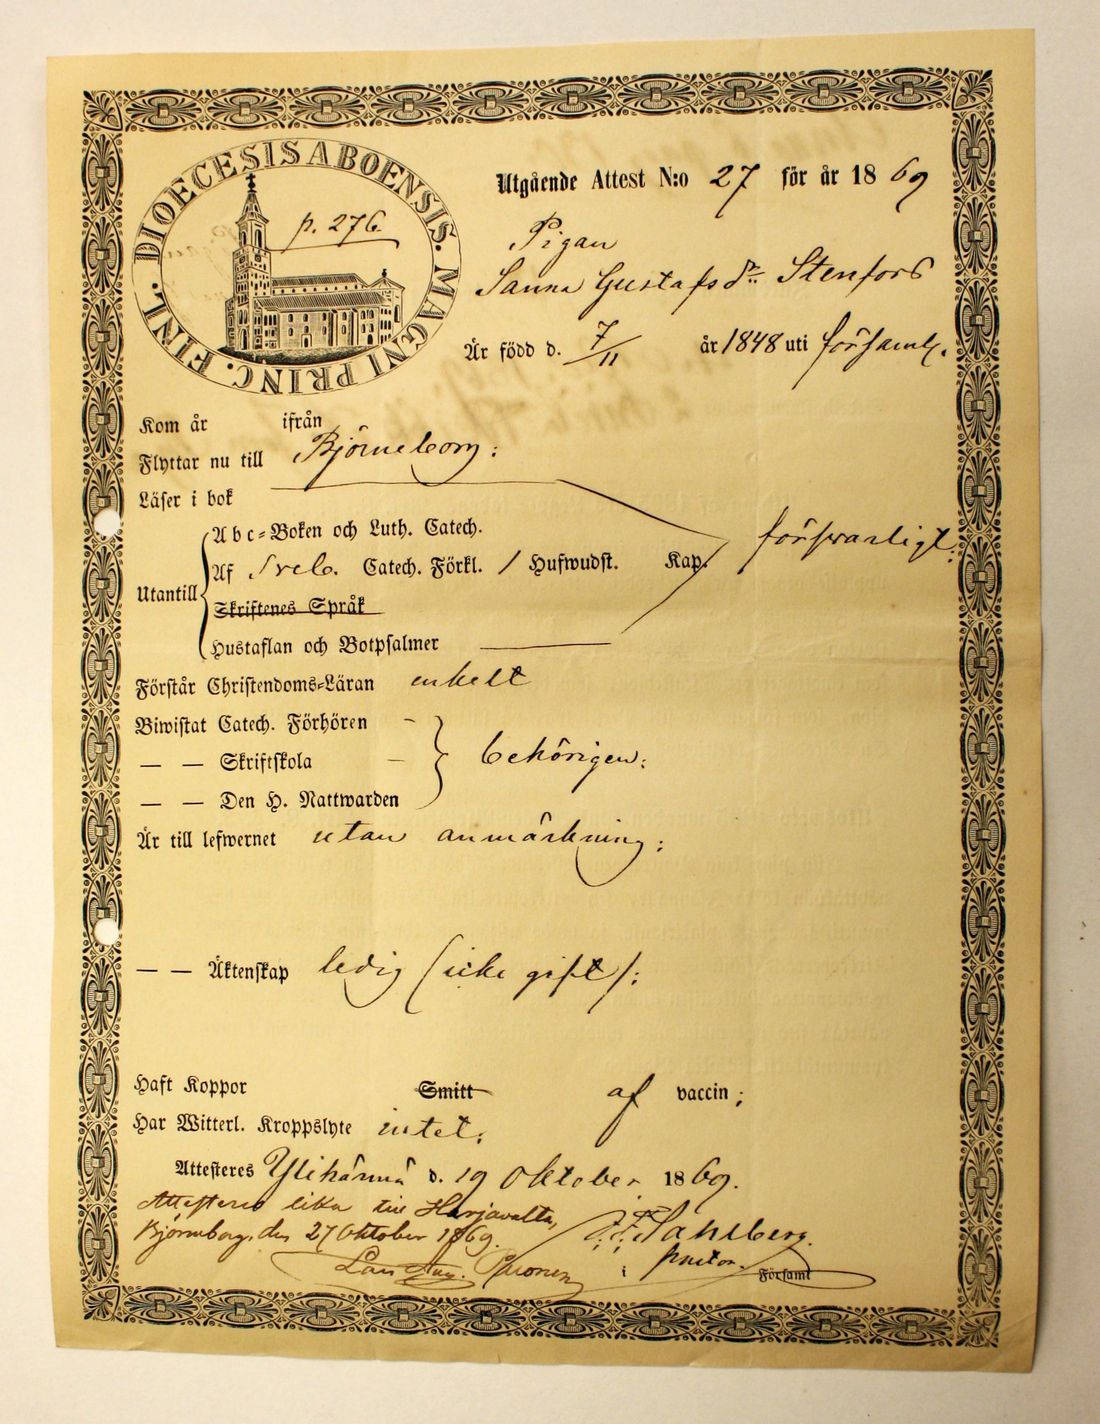 DIOECESIS ABOENSIS. MAGNI PRINC. FINL.
p. 276.
Utgående Attest N:o 27 för år 1869
Pigan
Sanna Gustafsdr Stenfors
Är född d. 7/11 år 1848 uti församl.
Kom år ifrån
Flyttar nu till Björneborg:
Läser i bok
Abc-Boken och Luth. Catech.
försvarligt:
Utantill
Af Sveb. Catech. Förkl. / Hufwudst. Kap.
Skriftenes Språk
Hustaflan och Botpsalmer
Förstår Christendoms-Läran enkelt
Biwistat Catech. Förhören –
— — Skriftskola – behörigen:
— — Den H. Nattwarden
Är till lefwernet utan anmärkning:
— — Äktenskap ledig (icke gift):
Haft Koppor Smitt af vaccin;
Har Witterl. Kroppslyte intet;
Attesteres Ylihärmä d. 19 Oktober 1869.
Attesteras lika till Harjavalta,
Björneborg, den 27 Oktober 1869.
Sahlberg.
i Församl